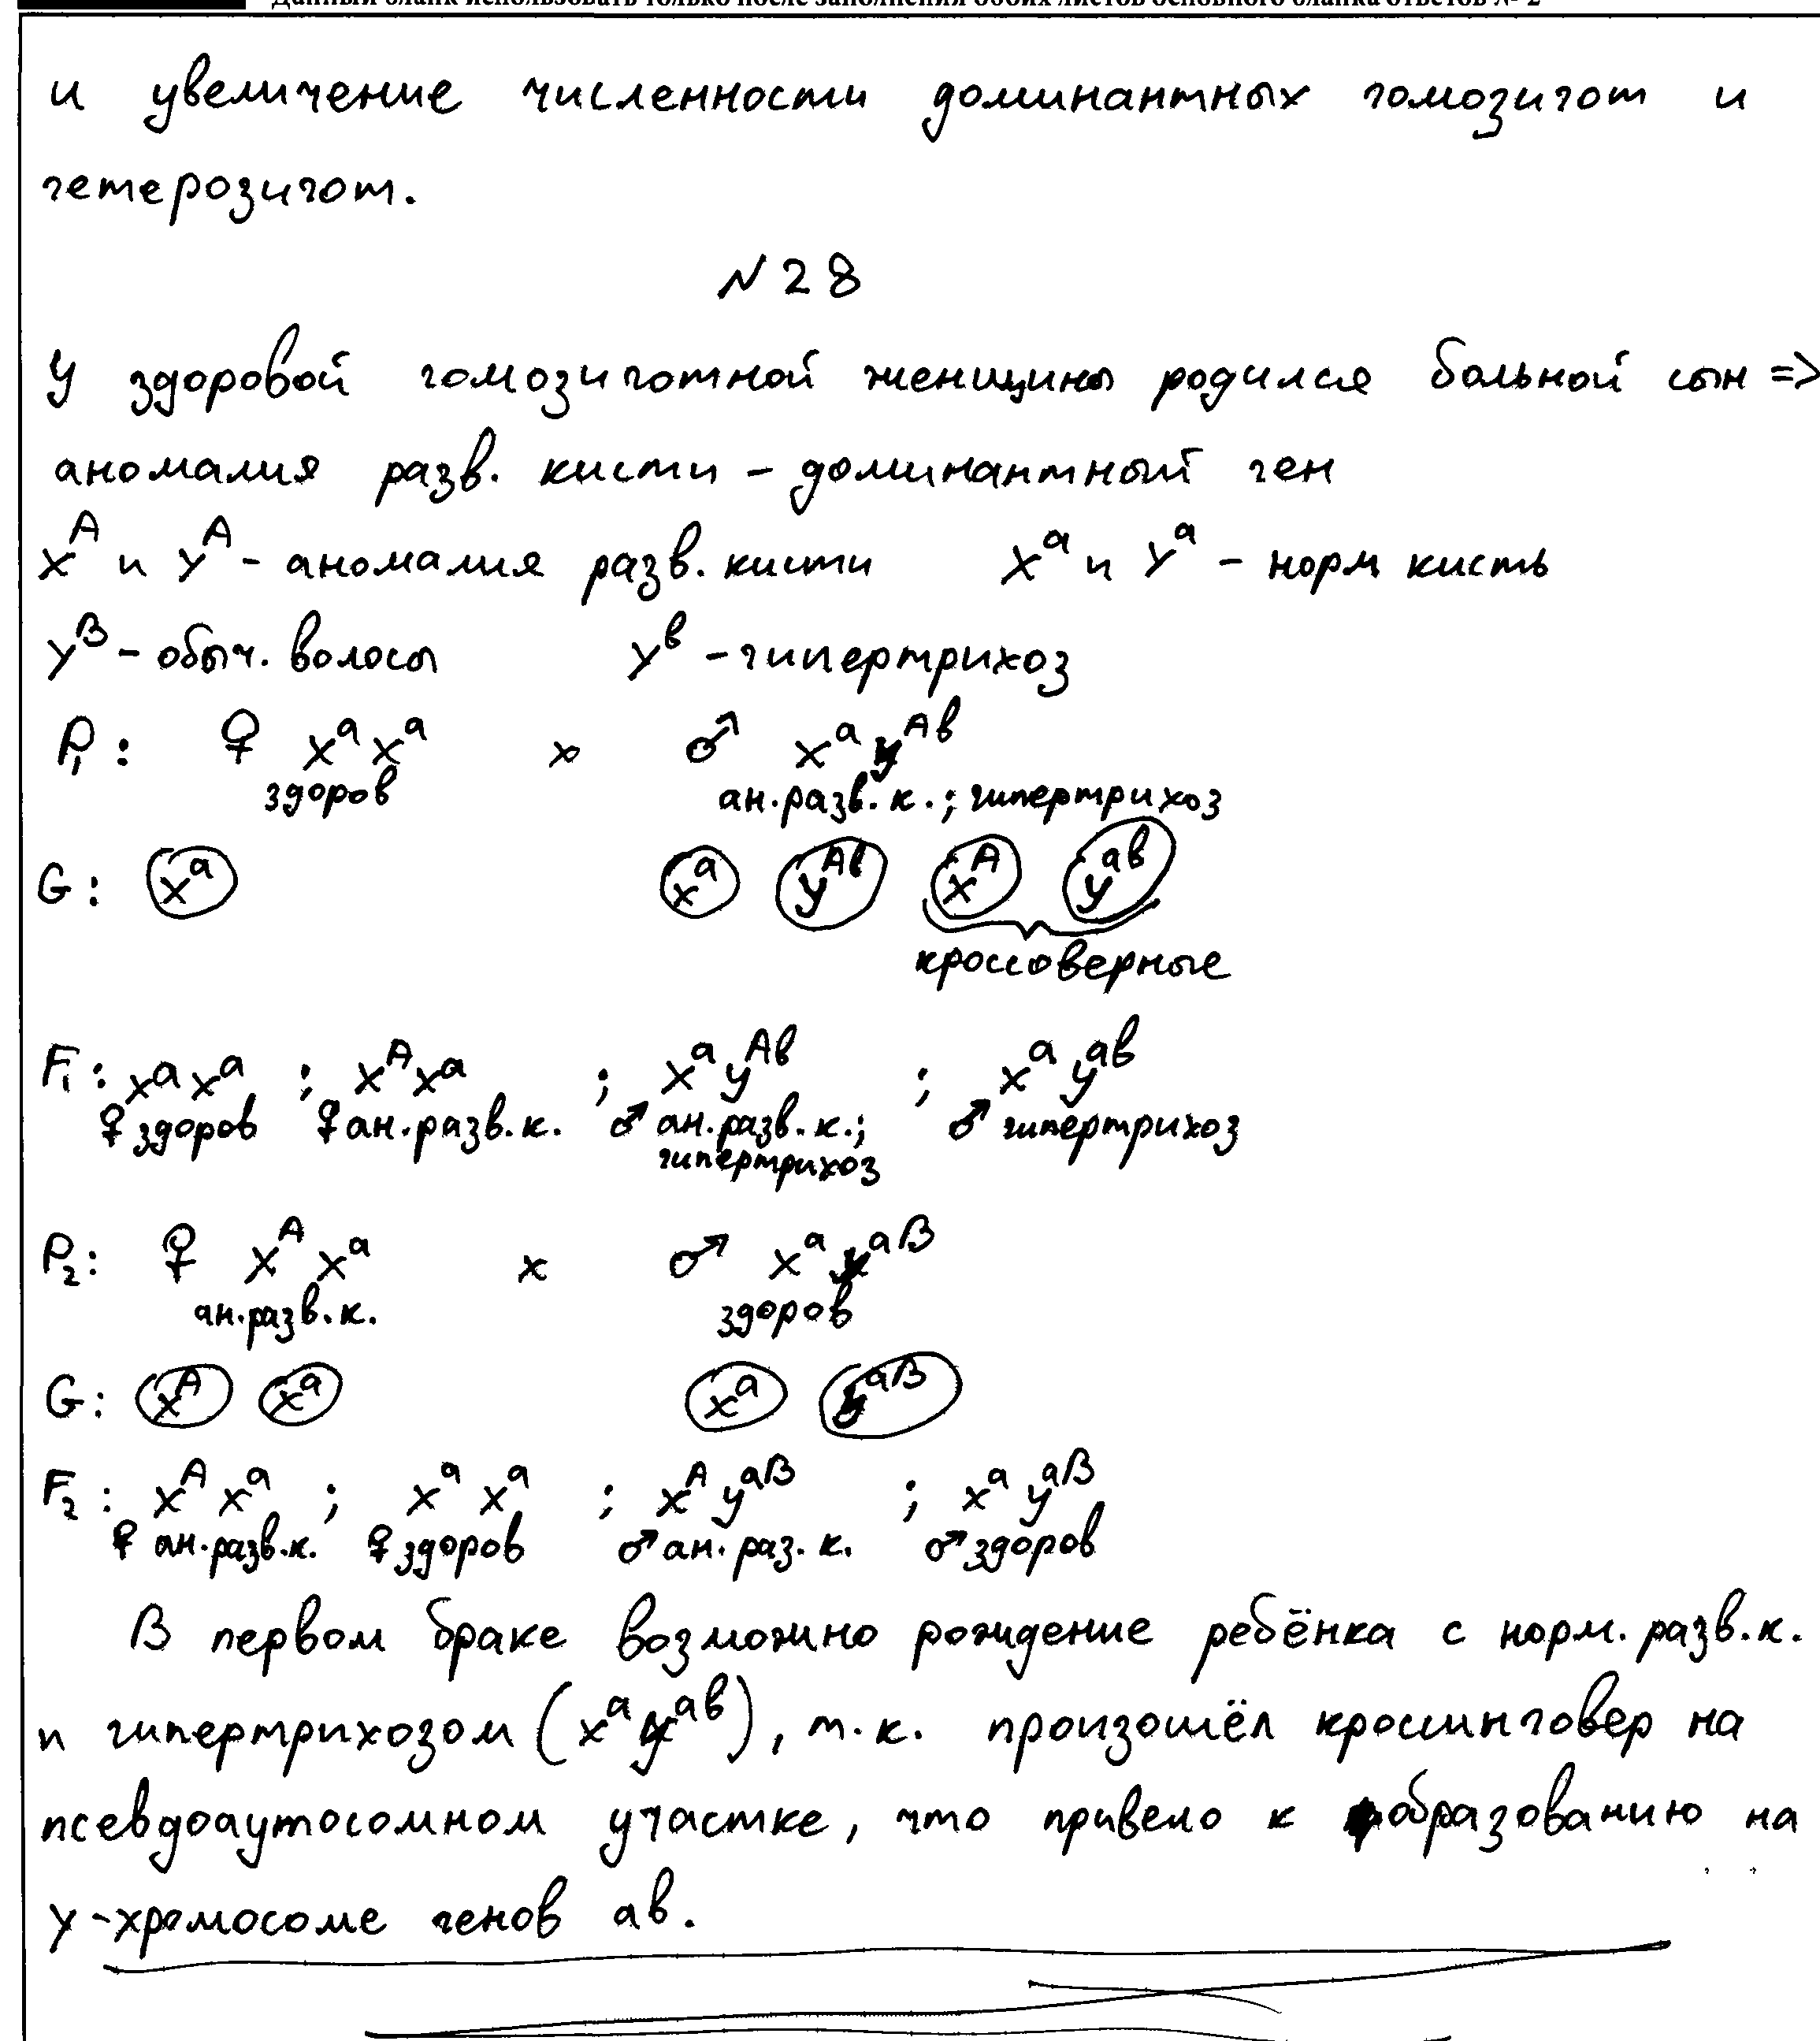 Данный бланк использовать только после заполнения обоих листов основного бланка ответов № 2
и увеличение численности доминантных гомозигот и
гетерозигот.
№ 28
У здоровой гомозиготной женщины родился больной сын =>
аномалия разв. кисти - доминантный ген
X^A и Y^A - аномалия разв. кисти X^a и Y^a - норм кисть
Y^B - обыч. волосы Y^b - гипертрихоз
P₁: ♀ X^a X^a x ♂ X^a Y^Ab
здоров ан. разв. к.; гипертрихоз
G: X^a X^a Y^Ab X^A Y^ab
кроссоверные
F₁: X^a X^a ; X^A X^a ; X^a Y^Ab ; X^a Y^ab
♀ здоров ♀ ан. разв. к. ♂ ан. разв. к.; ♂ гипертрихоз
гипертрихоз
P₂: ♀ X^A X^a x ♂ X^a Y^aB
ан. разв. к. здоров
G: X^A X^a X^a Y^aB
F₂: X^A X^a ; X^a X^a ; X^A Y^aB ; X^a Y^aB
♀ ан. разв. к. ♀ здоров ♂ ан. раз. к. ♂ здоров
В первом браке возможно рождение ребёнка с норм. разв. к.
и гипертрихозом (X^a Y^ab), т.к. произошёл кроссинговер на
псевдоаутосомном участке, что привело к образованию на
Y-хромосоме генов ab.